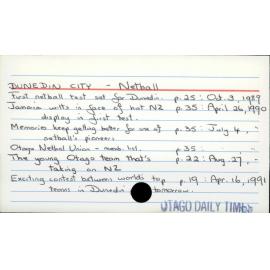 DUNEDIN CITY - Netball
First netball test set for Dunedin. p.25: Oct. 3, 1989
Jamaica wilts in face of hot NZ p.35: April 26, 1990
display in first test.
Memories keep getting better for one of p.35: July 4, "
netball's pioneers.
Otago Netball Union - memb. list. p.35 "
The young Otago team that's p.22: Aug. 27, "
taking on NZ
Exciting contest between world's top p.19: Apr. 16, 1991
teams in Dunedin tomorrow.
OTAGO DAILY TIMES